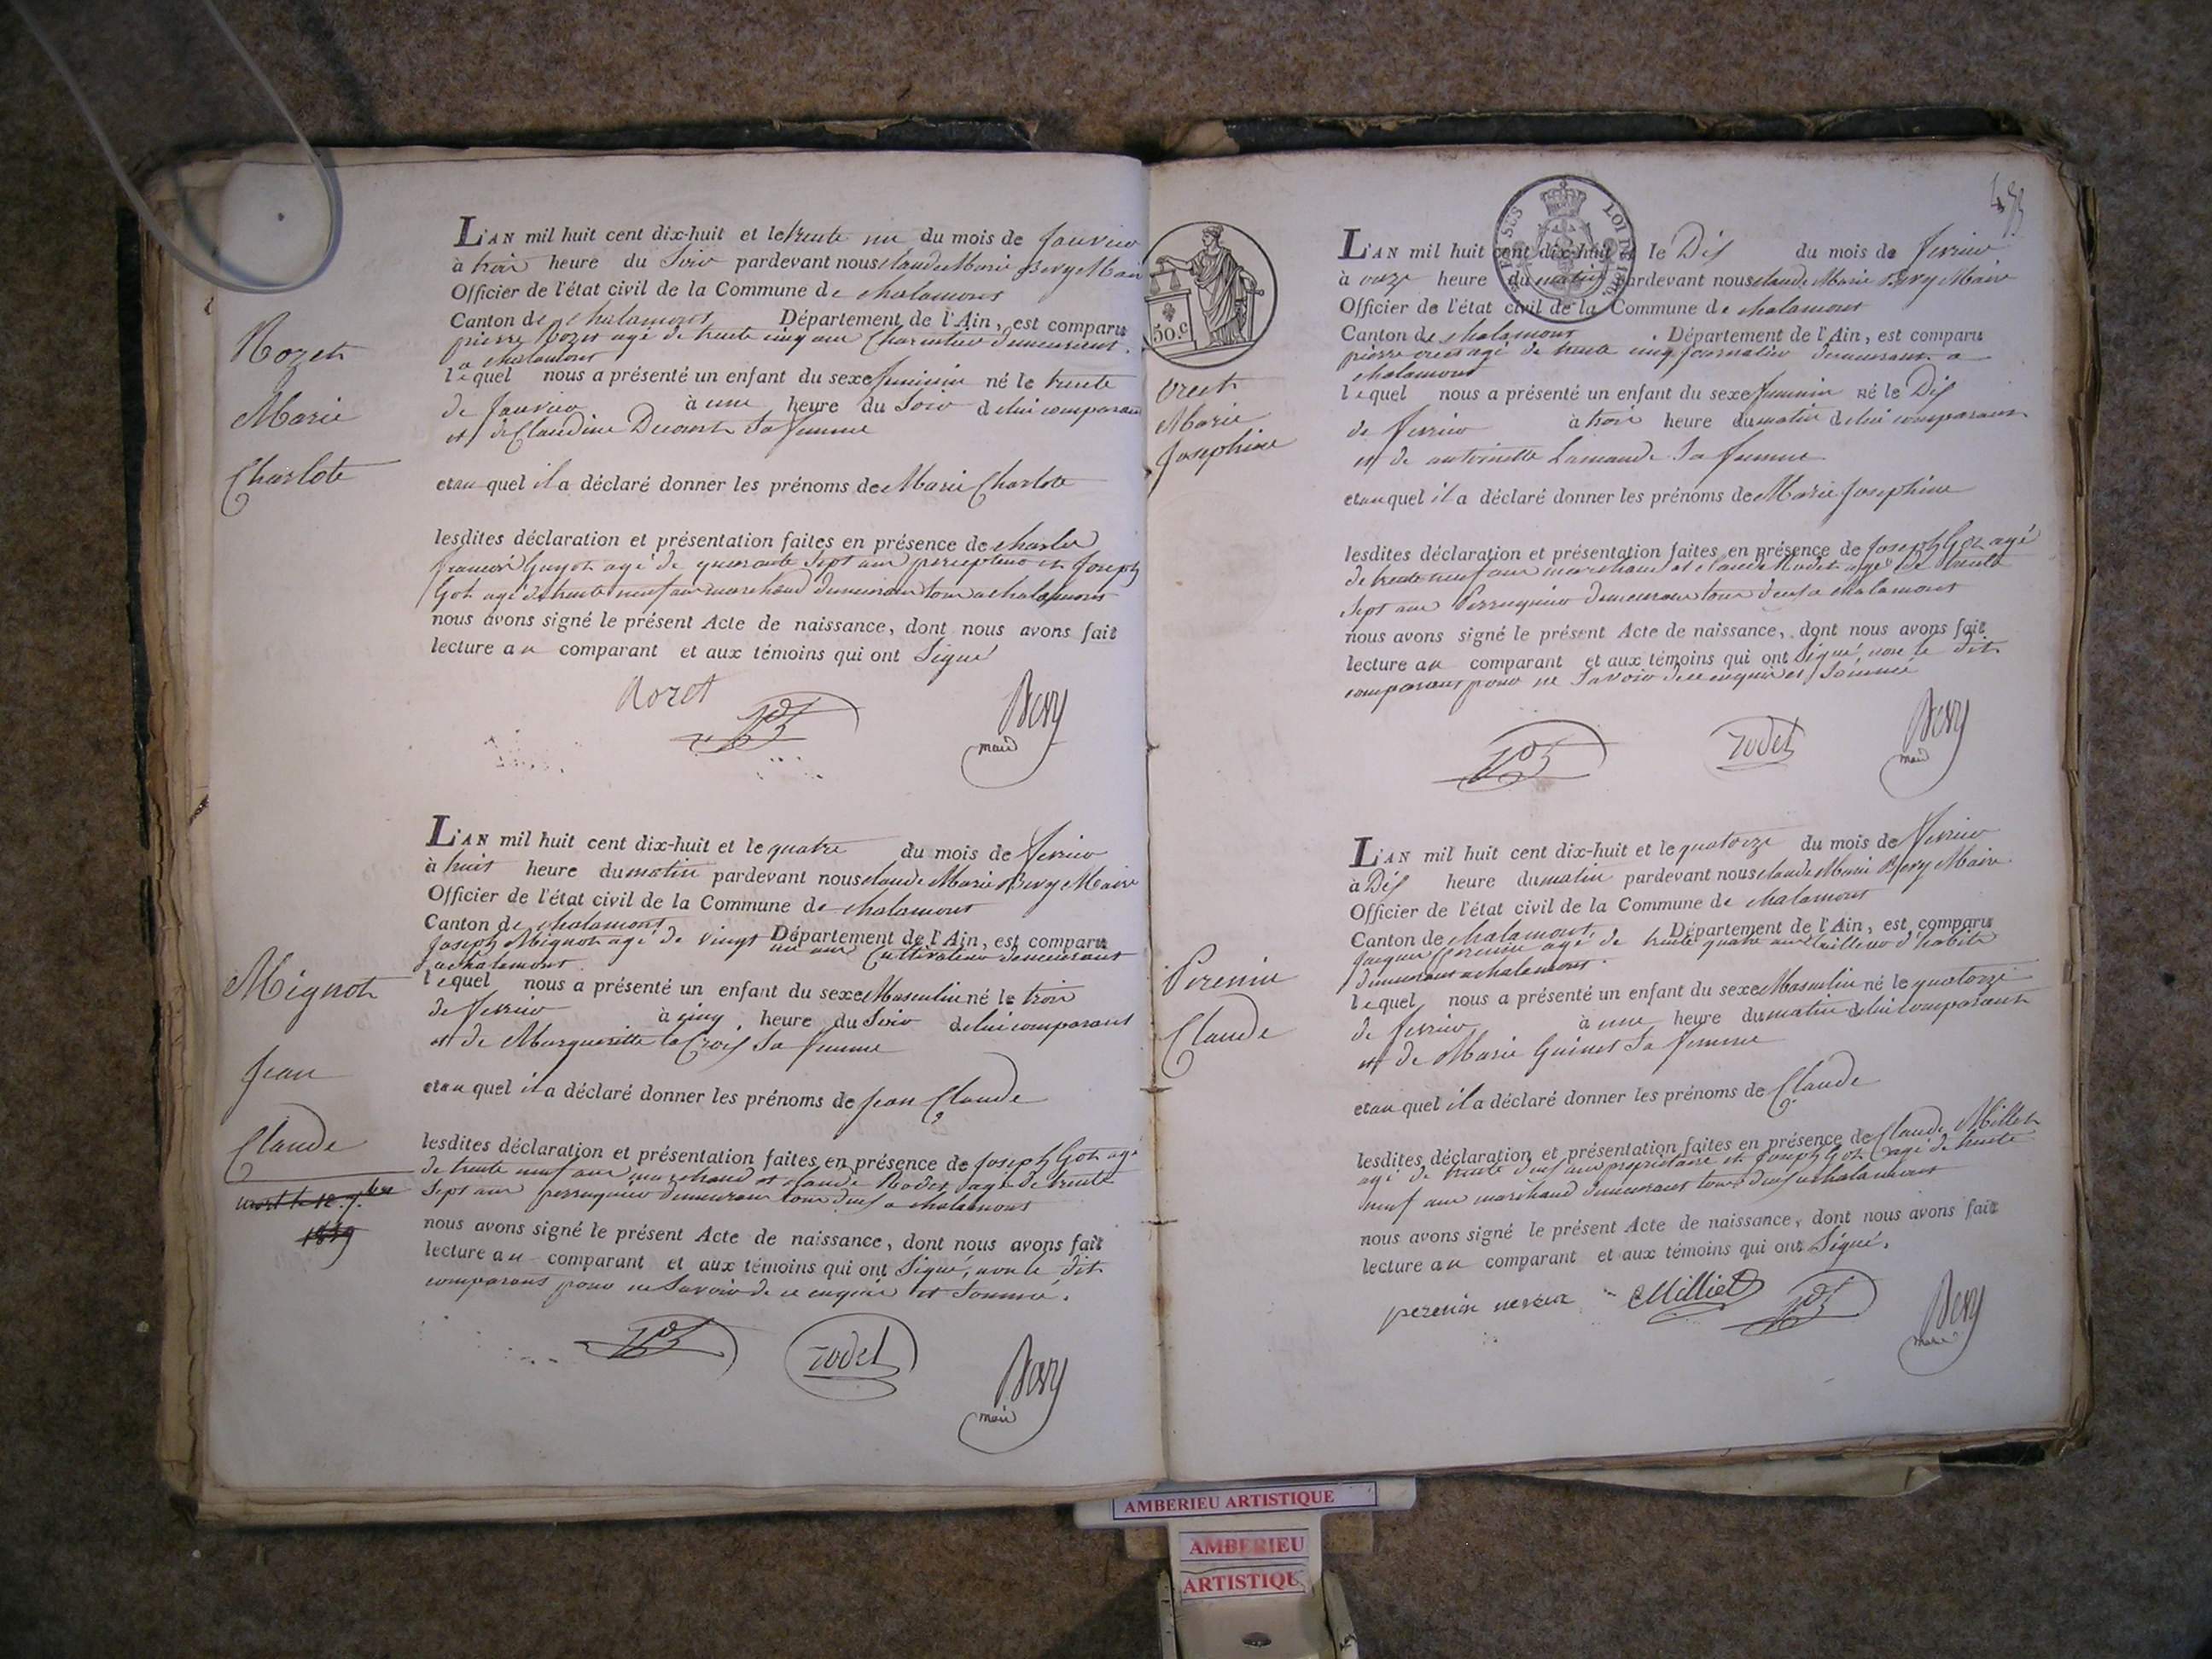 Rozet
Marie
Charlote
L'AN mil huit cent dix-huit et le trente un du mois de Janvier
à trois heure du Soir pardevant nous claude Marie Bevy Maire
Officier de l'état civil de la Commune de chalamont
Canton de chalamont Département de l'Ain, est comparu
pierre Rozet agé de trente cinq ans Charcutier demeurant
a chalamont
lequel nous a présenté un enfant du sexe feminin né le trente
de Janvier à une heure du Soir de lui comparant
et de Claudine Ducourt Sa femme
et au quel il a déclaré donner les prénoms de Marie Charlote
lesdites déclaration et présentation faites en présence de charles
francois Guyot agé de quarante Sept ans percepteur et Joseph
Got agé de trente neuf ans marchand demeurant tous a chalamont
nous avons signé le présent Acte de naissance, dont nous avons fait
lecture au comparant et aux témoins qui ont Signé
Rozet
Bevy
maire
Mignot
Jean
Claude
mort le 12 7.bre
1819
L'AN mil huit cent dix-huit et le quatre du mois de fevrier
à huit heure du matin pardevant nous claude Marie Bevy Maire
Officier de l'état civil de la Commune de chalamont
Canton de chalamont Département de l'Ain, est comparu
Joseph Mignot agé de vingt un ans Cultivateur demeurant
a chalamont
lequel nous a présenté un enfant du sexe Masculin né le trois
de fevrier à cinq heure du Soir de lui comparant
et de Margueritte la Croix Sa femme
et au quel il a déclaré donner les prénoms de Jean Claude
lesdites déclaration et présentation faites en présence de Joseph Got agé
de trente neuf ans marchand et claude Rodet agé de trente
Sept ans perruquier demeurant tous deux a chalamont
nous avons signé le présent Acte de naissance, dont nous avons fait
lecture au comparant et aux témoins qui ont Signé, non le dit
comparant pour ne Savoir de ce enquis et Sommé.
rodet
Bevy
maire
433
50.c
LOI DE 1816
oreet
Marie
Josephine
L'AN mil huit cent dix-huit et le Dix du mois de fevrier
à onze heure du matin pardevant nous claude Marie Bevy Maire
Officier de l'état civil de la Commune de chalamont
Canton de chalamont Département de l'Ain, est comparu
pierre oreet agé de trente cinq Journalier demeurant a
chalamont
lequel nous a présenté un enfant du sexe feminin né le Dix
de fevrier à trois heure du matin de lui comparant
et de antoinette Lamande Sa femme
et au quel il a déclaré donner les prénoms de Marie Josephine
lesdites déclaration et présentation faites en présence de Joseph Got agé
de trente neuf ans marchand et claude Rodet agé de trente
Sept ans Perruquier demeurant tous deux a chalamont
nous avons signé le présent Acte de naissance, dont nous avons fait
lecture au comparant et aux témoins qui ont Signé, non le dit
comparant pour ne Savoir de ce enquis et Sommé
rodet
Bevy
maire
Perenin
Claude
L'AN mil huit cent dix-huit et le quatorze du mois de fevrier
à Dix heure du matin pardevant nous claude Marie Bevy Maire
Officier de l'état civil de la Commune de chalamont
Canton de chalamont Département de l'Ain, est comparu
Jacques Perenin agé de trente quatre ans tailleur d'habits
demeurant a chalamont
lequel nous a présenté un enfant du sexe Masculin né le quatorze
de fevrier à une heure du matin de lui comparant
et de Marie Guinet Sa femme
et au quel il a déclaré donner les prénoms de Claude
lesdites déclaration et présentation faites en présence de Claude Milliet
agé de trente deux ans proprietaire et Joseph Got agé de trente
neuf ans marchand demeurant tous deux a chalamont
nous avons signé le présent Acte de naissance, dont nous avons fait
lecture au comparant et aux témoins qui ont Signé.
perenin
CMilliet
Bevy
maire
AMBERIEU ARTISTIQUE
AMBERIEU
ARTISTIQUE